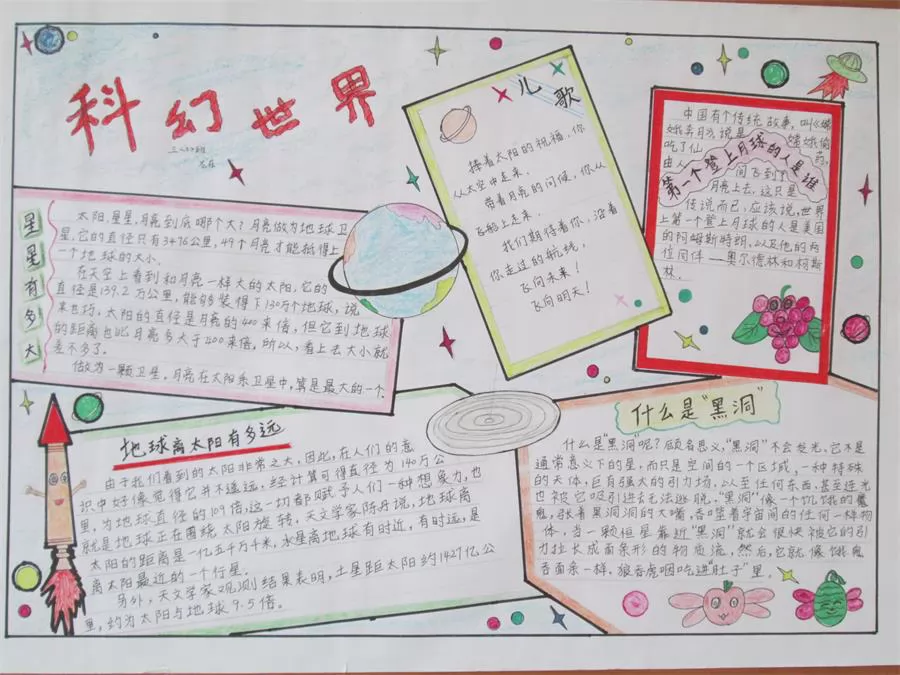 科幻世界
儿歌
捧着太阳的祝福，你
从太空中走来，
带着月亮的问候，你从
飞船上走来，
我们期待着你，沿着
你走过的航线，
飞向未来！
飞向明天！
中国有个传统故事，叫《嫦
娥奔月》说是嫦娥偷
吃了仙药，
由人间飞到了
月亮上去，这只是
传说而已，应该说，世界
上第一个登上月球的人是美国
的阿姆斯特朗，以及他的两
位同伴——奥尔德林和柯斯
林．
第一个登上月球的人是谁
星星有多大
太阳，星星，月亮到底哪个大？月亮做为地球卫
星，它的直径只有3476公里，49个月亮才能抵得上
一个地球的大小．
在天空上看到和月亮一样大的太阳，它的
直径是139.2万公里，能够装得下130万个地球，说
来也巧，太阳的直径是月亮的400来倍，但它到地球
的距离也比月亮多大于400来倍，所以，看上去大小就
差不多了．
做为一颗卫星，月亮在太阳系卫星中，算是最大的一个．
地球离太阳有多远
由于我们看到的太阳非常之大，因此，在人们的意
识中好像觉得它并不遥远，经计算可得直径为140万公
里，为地球直径的109倍，这一切都赋予人们一种想象力，也
就是地球正在围绕太阳旋转，天文学家陈丹说，地球离
太阳的距离是一亿五千万千米，水星离地球有时近，有时远，是
离太阳最近的一个行星．
另外，天文学家观测结果表明，土星距太阳约1427亿公
里，约为太阳与地球9.5倍．
什么是“黑洞”
什么是“黑洞”呢？顾名思义，“黑洞”不会发光，它不是
通常意义下的星，而只是空间的一个区域，一种特殊
的天体，巨有强大的引力场，以至任何东西，甚至连光
也被它吸引进去无法逃脱，“黑洞”像一个饥饿的魔
鬼，张着黑洞洞的大嘴，吞噬着宇宙间的任何一样物
体，当一颗恒星靠近“黑洞”就会很快被它的引
力拉长成面条形的物质流，然后，它就像饿鬼
吞面条一样，狼吞虎咽吃进“肚子”里．